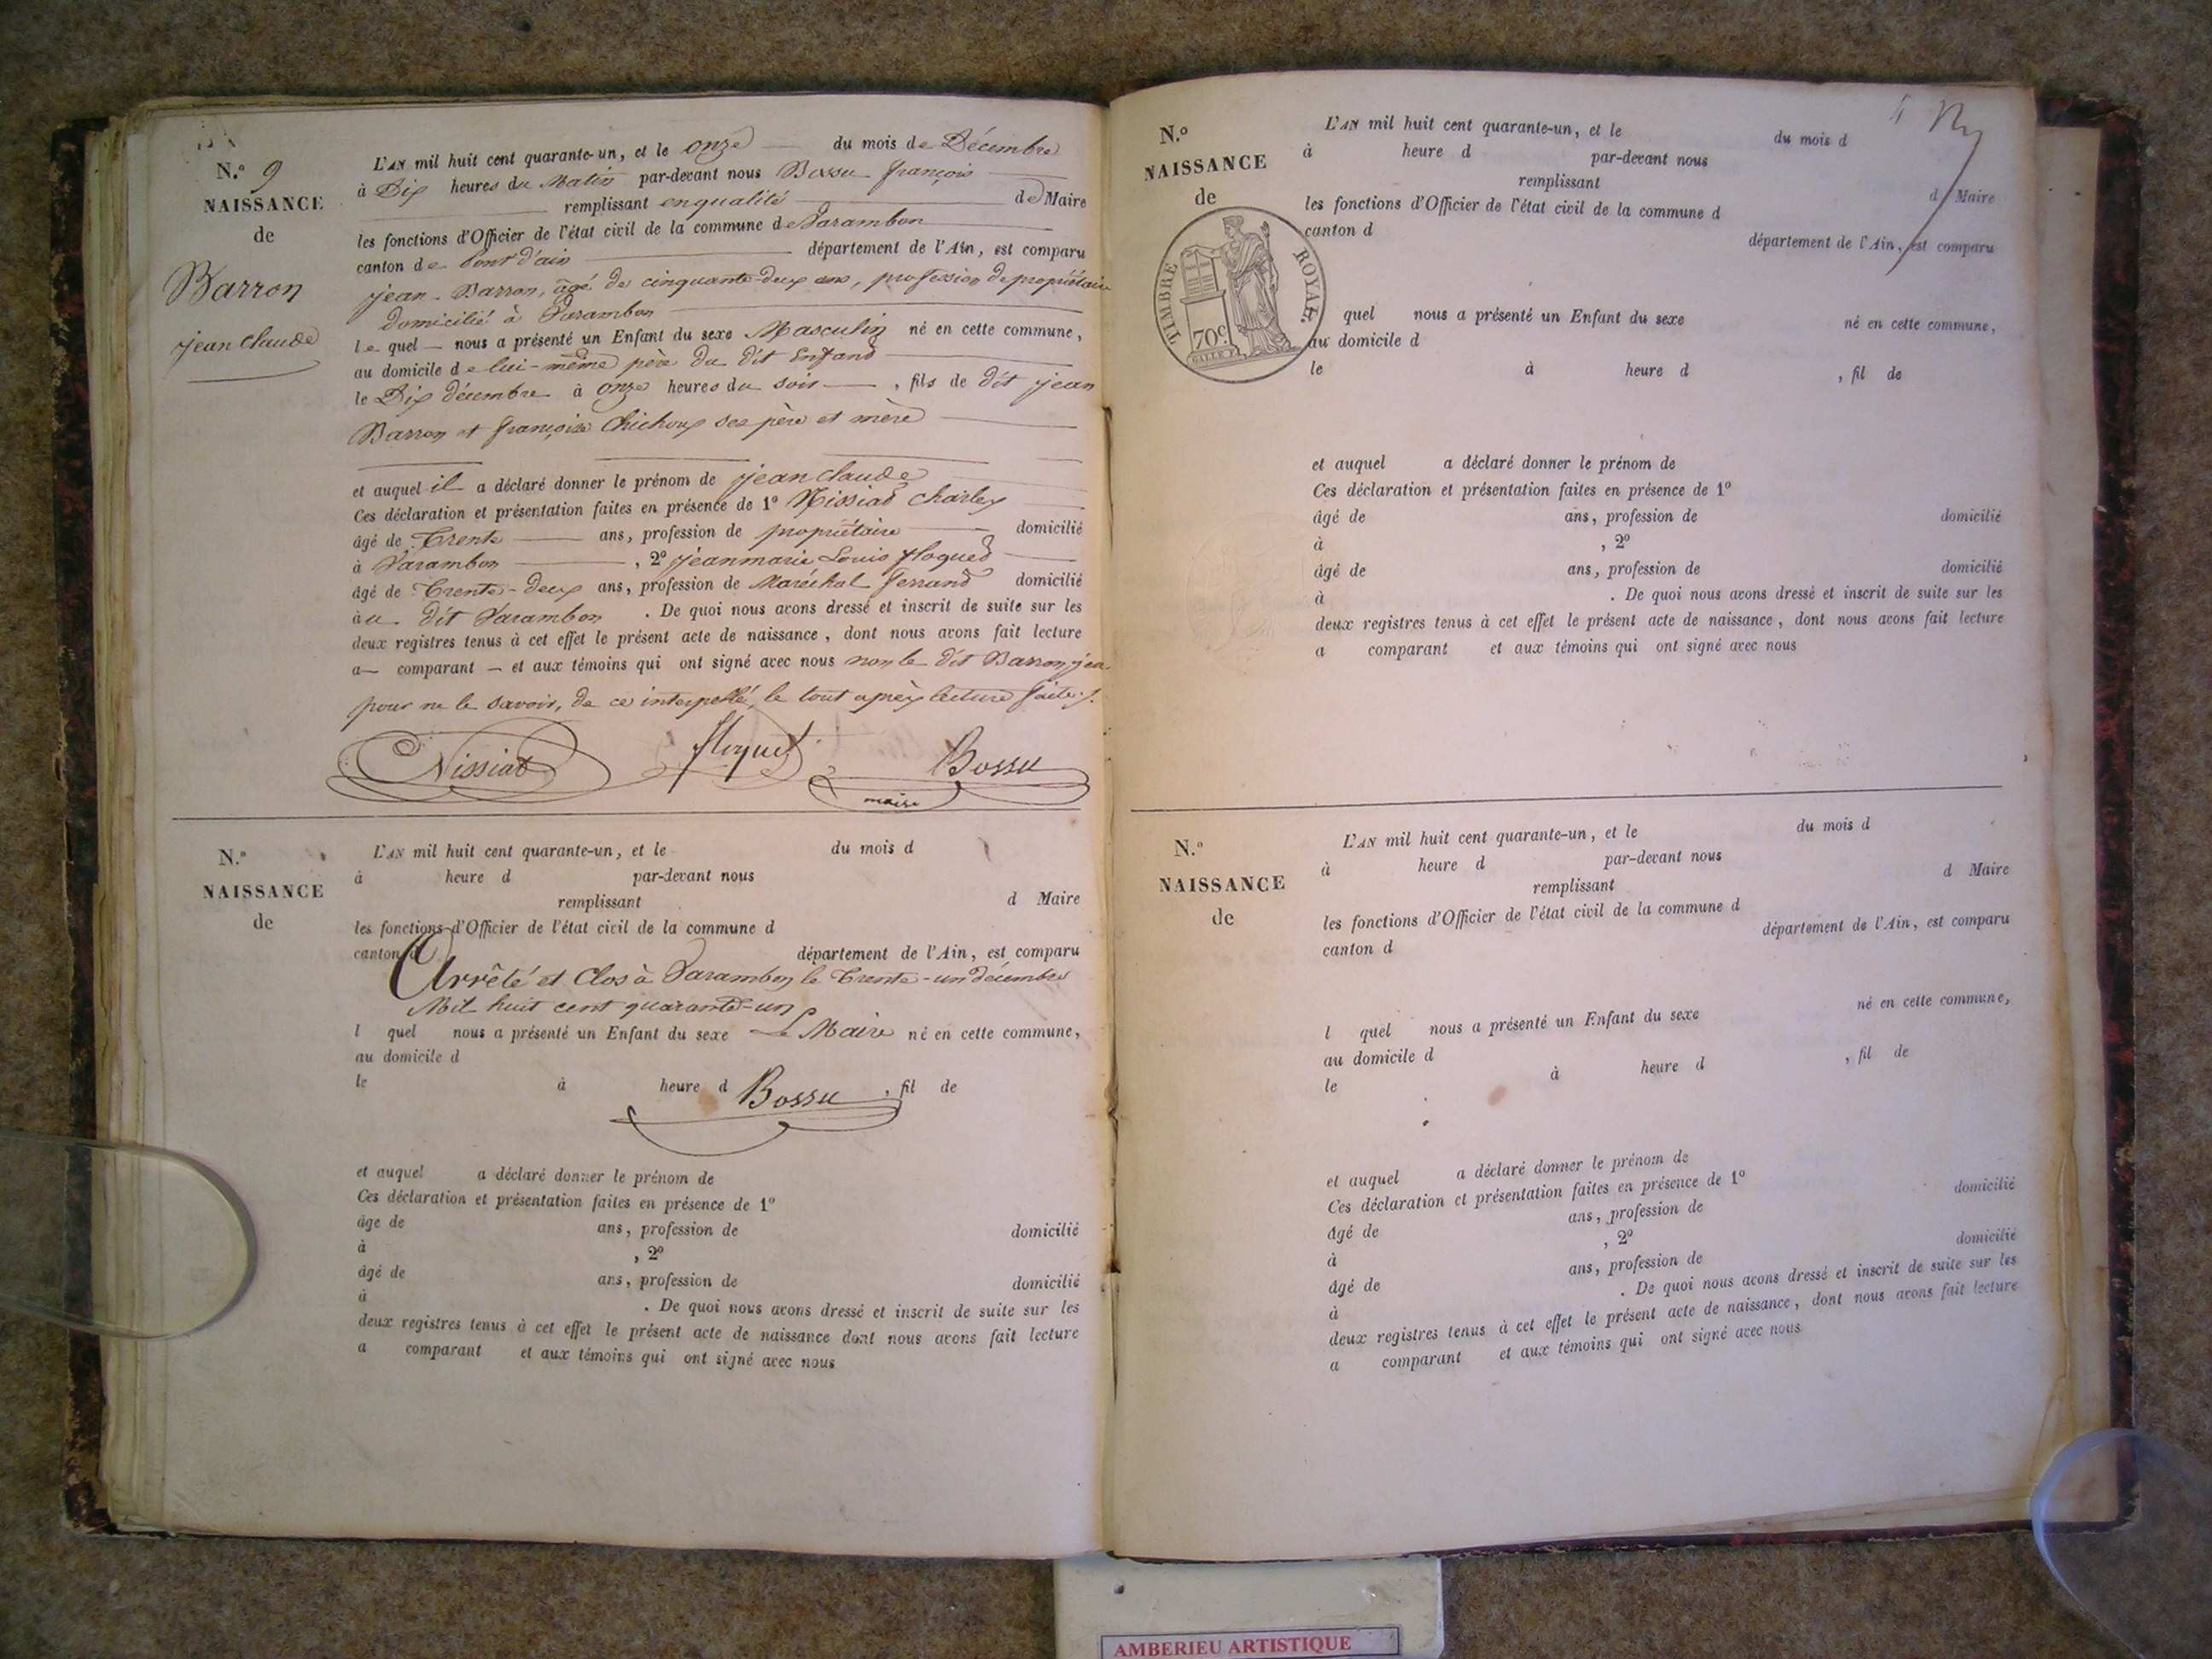 N.o 9
NAISSANCE
de
Barron
jean Claude
L'AN mil huit cent quarante-un, et le onze du mois de Décembre
à Dix heures du Matin par-devant nous Bossu françois
remplissant en qualité de Maire
les fonctions d'Officier de l'état civil de la commune de Varambon
canton de Pont d'ain département de l'Ain, est comparu
jean Barron, âgé de cinquante-deux ans, profession de propriétaire
domicilié à Varambon
le quel nous a présenté un Enfant du sexe Masculin né en cette commune,
au domicile de lui-même père du dit Enfand
le Dix décembre à onze heures du soir, fils de dit jean
Barron et françoise Chichoux ses père et mère
et auquel il a déclaré donner le prénom de jean Claude
Ces déclaration et présentation faites en présence de 1o Nissiat Charles
âgé de Trente ans, profession de propriétaire domicilié
à Varambon, 2o jeanmarie Louis floqued
âgé de Trente-deux ans, profession de Maréchal ferrand domicilié
à au dit Varambon. De quoi nous avons dressé et inscrit de suite sur les
deux registres tenus à cet effet le présent acte de naissance, dont nous avons fait lecture
a comparant et aux témoins qui ont signé avec nous non le dit Barron jean
pour ne le savoir, de ce interpellé, le tout après lecture faite.
Nissiat floquet Bossu
maire
N.o
NAISSANCE
de
L'AN mil huit cent quarante-un, et le du mois d
à heure d par-devant nous
remplissant d Maire
les fonctions d'Officier de l'état civil de la commune d
canton d département de l'Ain, est comparu
Arrêté et Clos à Varambon le Trente-un décembre
Mil huit cent quarante-un
l quel nous a présenté un Enfant du sexe né en cette commune,
Le Maire
au domicile d
le à heure d , fil de
Bossu
et auquel a déclaré donner le prénom de
Ces déclaration et présentation faites en présence de 1o
âge de ans, profession de domicilié
à , 2o
âgé de ans, profession de domicilié
à . De quoi nous avons dressé et inscrit de suite sur les
deux registres tenus à cet effet le présent acte de naissance dont nous avons fait lecture
a comparant et aux témoins qui ont signé avec nous
N.o
NAISSANCE
de
TIMBRE ROYAL
70c.
L'AN mil huit cent quarante-un, et le du mois d
à heure d par-devant nous
remplissant d Maire
les fonctions d'Officier de l'état civil de la commune d
canton d département de l'Ain, est comparu
quel nous a présenté un Enfant du sexe né en cette commune,
au domicile d
le à heure d , fil de
et auquel a déclaré donner le prénom de
Ces déclaration et présentation faites en présence de 1o
âgé de ans, profession de domicilié
à , 2o
âgé de ans, profession de domicilié
à . De quoi nous avons dressé et inscrit de suite sur les
deux registres tenus à cet effet le présent acte de naissance, dont nous avons fait lecture
a comparant et aux témoins qui ont signé avec nous
N.o
NAISSANCE
de
L'AN mil huit cent quarante-un, et le du mois d
à heure d par-devant nous
remplissant d Maire
les fonctions d'Officier de l'état civil de la commune d
canton d département de l'Ain, est comparu
l quel nous a présenté un Enfant du sexe né en cette commune,
au domicile d
le à heure d , fil de
et auquel a déclaré donner le prénom de
Ces déclaration et présentation faites en présence de 1o
âgé de ans, profession de domicilié
à , 2o
âgé de ans, profession de domicilié
à . De quoi nous avons dressé et inscrit de suite sur les
deux registres tenus à cet effet le présent acte de naissance, dont nous avons fait lecture
a comparant et aux témoins qui ont signé avec nous
AMBERIEU ARTISTIQUE